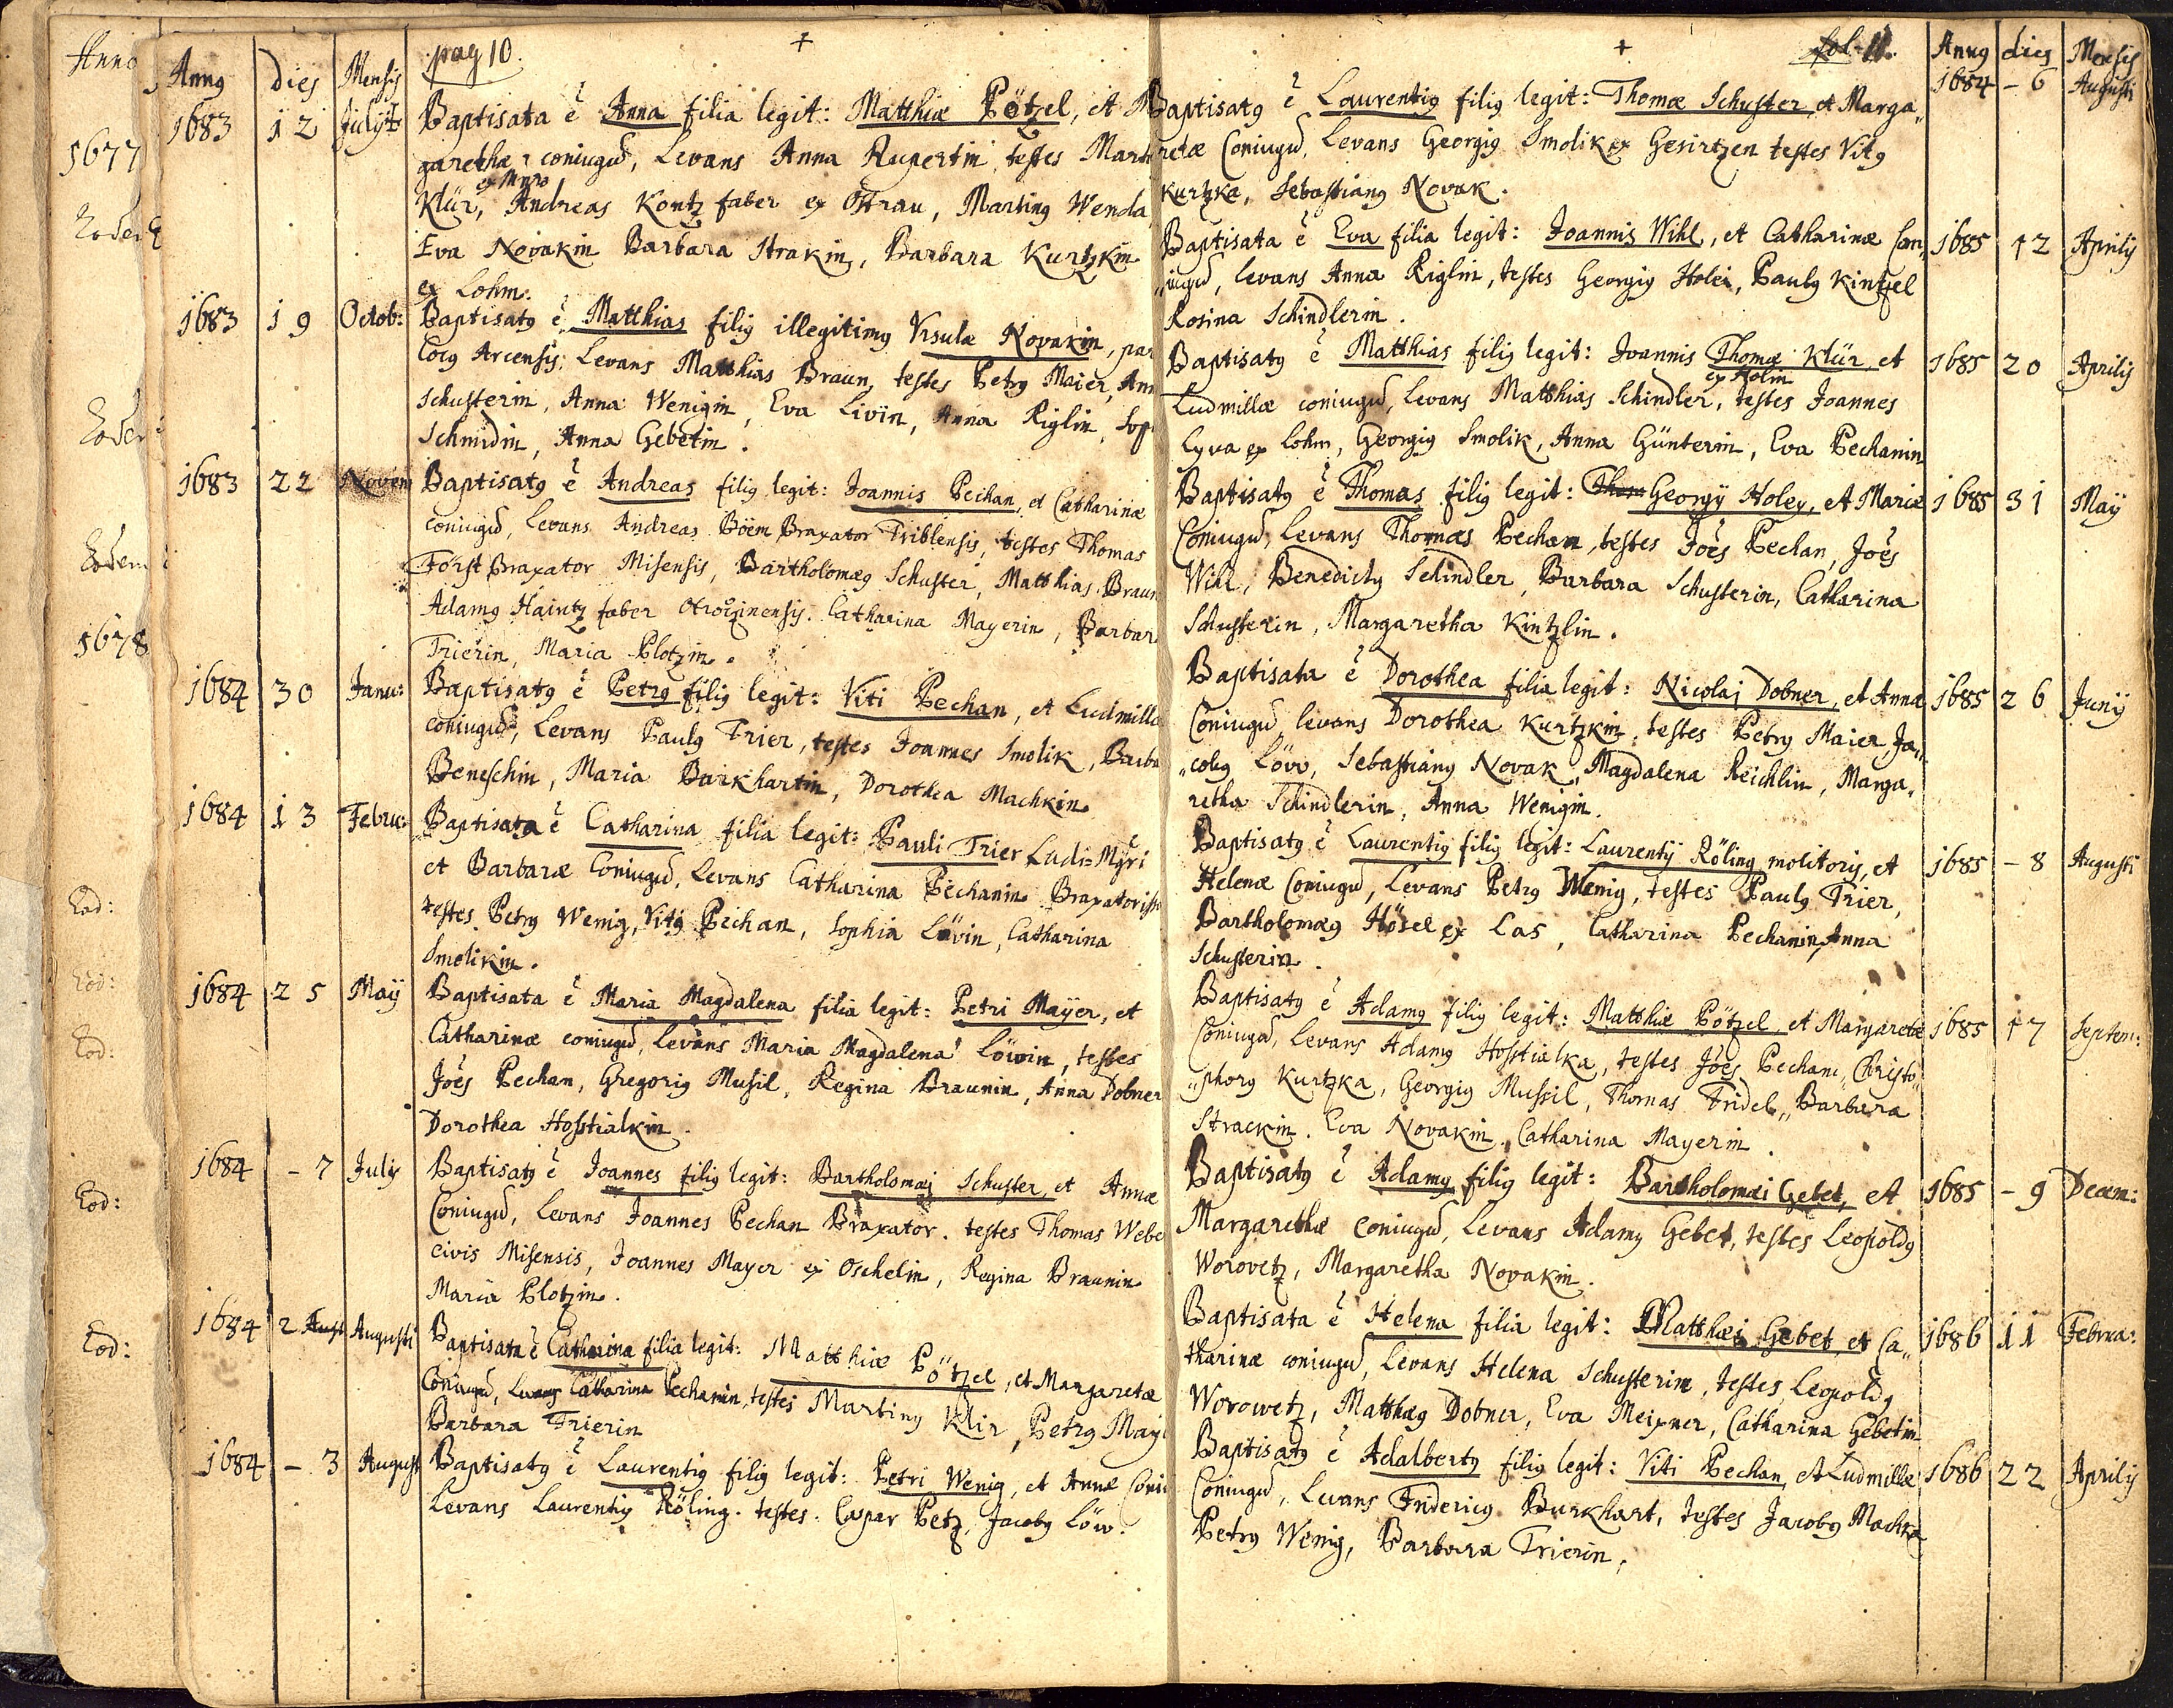 Anno
1677
Eodem
Eodem
Eodem
1678
Eod:
Eod:
Eod:
Eod:
Eod:
Annq dies Mensis pag 10. +
1683 12 July Baptisata ẽ Anna filia legit: Matthiæ Pötzel, et
garethæ coniugū, Levans Anna Rupertin testes Mart
Klür, Andreas Kontz faber ex Ostrau, Martinq Wenda
Eva Novakin Barbara Strakin, Barbara Kurtzkin
ex Lohm.
1683 19 Octob: Baptisatq ẽ Matthias filiq illegitimq Ursulæ Novakin, pa
Cocq Arcensis: Levans Matthias Braun, testes Petrq Maier, Ann
Schusterin, Anna Wenigin, Eva Livin, Anna Riglin, Sop
Schmidin, Anna Gebetin.
1683 22 Novem Baptisatq ẽ Andreas filiq legit: Joannis Pechan, et Catharinæ
coniugū, Levans Andreas Böem Braxator Triblensis, testes Thomas
Först Braxator Misensis, Bartholomæq Schuster, Matthias Braun
Adamq Haintz faber Otrozinensis. Catharina Mayerin, Barbar
Trierin, Maria Plotzin.
1684 30 Janu: Baptisatq ẽ Petrq filiq legit: Viti Pechan, et Ludmillæ
coniugū, Levans Paulq Trier, testes Joannes Smolik, Barba
Beneschin, Maria Burkhartin, Dorothea Machkin
1684 13 Febru: Baptisata ẽ Catharina filia legit: Pauli Trier Ludi-Mgri
et Barbaræ Coniugū, Levans Catharina Pechanin Braxatoriss
testes Petrq Wenig, Vitq Pechan, Sophia Lövin, Catharina
Smolikin.
1684 25 Maÿ Baptisata ẽ Maria Magdalena filia legit: Petri Mayer, et
Catharinæ coniugū, Levans Maria Magdalena Löwin, testes
Joẽs Pechan, Gregoriq Musil, Regina Braunin, Anna Dobner
Dorothea Hosstialkin.
1684 - 7 July Baptisatq ẽ Joannes filiq legit: Bartholomæi Schuster, et Annæ
Coniugū, Levans Joannes Pechan Braxator. testes Thomas Webe
civis Misensis, Joannes Mayer ex Oschelin, Regina Braunin
Maria Plotzin.
1684 2 Augusti Baptisata ẽ Catharina filia legit: Matthiæ Pötzel, et Margaretæ
Coniugū, Levans Catharina Pechanin, testes Martinq Klir, Petrq May
Barbara Trierin
1684 - 3 August Baptisatq ẽ Laurentiq filiq legit: Petri Wenig, et Annæ Coni
Levans Laurentiq Röling. testes. Caspar Petz, Jacobq Löw.
+ fol-11. Annq dies Mensis
Baptisatq ẽ Laurentiq filiq legit: Thomæ Schuster, et Marga„ 1684 - 6 Augusti
retæ Coniugū, Levans Georgiq Smolik ex Gesirtzen testes Vitq
Kurtzka, Sebastianq Novak.
Baptisata ẽ Eva filia legit: Joannis Wihl, et Catharinæ Con„ 1685 12 Aprilis
„iugū, levans Anna Riglin, testes Georgiq Holei, Paulq Kintzel
Rosina Schindlerin.
Baptisatq ẽ Matthias filiq legit: Joannis Thomæ Klür et 1685 20 Aprilis
ex Holin
Ludmillæ coniugū, Levans Matthias Schindler, testes Joannes
Lyva ex Lohm, Georgiq Smolik, Anna Günterin, Eva Pechanin
Baptisatq ẽ Thomas filiq legit: Thom Georgÿ Holey, et Mariæ 1685 31 Maÿ
Coniugū, Levans Thomas Pechan, testes Joẽs Pechan, Joẽs
Wihl, Benedictq Schindler, Barbara Schusterin, Catharina
Schusterin, Margaretha Kintzlin.
Baptisata ẽ Dorothea filia legit: Nicolai Dobner, et Annæ 1685 26 Junÿ
Coniugū levans Dorothea Kurtzkin, testes Petrq Maier, Ja„
„cobq Löw, Sebastianq Novak, Magdalena Reichlin, Marga„
retha Schindlerin, Anna Wenigin.
Baptisatq ẽ Laurentiq filiq legit: Laurentÿ Röling molitoris, et 1685 - 8 Augusti
Helenæ Coniugū, Levans Petrq Wenig, testes Paulq Trier,
Bartholomæq Hösel ex Las, Catharina Pechanin, Anna
Schusterin.
Baptisatq ẽ Adamq filiq legit: Matthiæ Pötzel, et Margaretæ 1685 17 Septem:
Coniugū, Levans Adamq Hosstialka, testes Joẽs Pechan, Christo„
„phorq Kurtzka, Georgiq Mussil, Thomas Fridel, Barbara
Strackin. Eva Novakin. Catharina Mayerin.
Baptisatq ẽ Adamq filiq legit: Bartholomæi Gebet, et 1685 - 9 Decem:
Margarethæ coniugū, Levans Adamq Gebet, testes Leopoldq
Worovetz, Margaretha Novakin.
Baptisata ẽ Helena filia legit: Matthæi Gebet, et Ca„ 1686 11 Februa:
tharinæ coniugū, Levans Helena Schusterin, testes Leopoldq
Worowetz, Matthæq Dobner, Eva Meixner, Catharina Gebetin
Baptisatq ẽ Adalbertq filiq legit: Viti Pechan, et Ludmillæ 1686 22 Aprilis
Coniugū, Levans Fridericq Burkhart, testes Jacobq Machka
Petrq Wenig, Barbara Trierin.